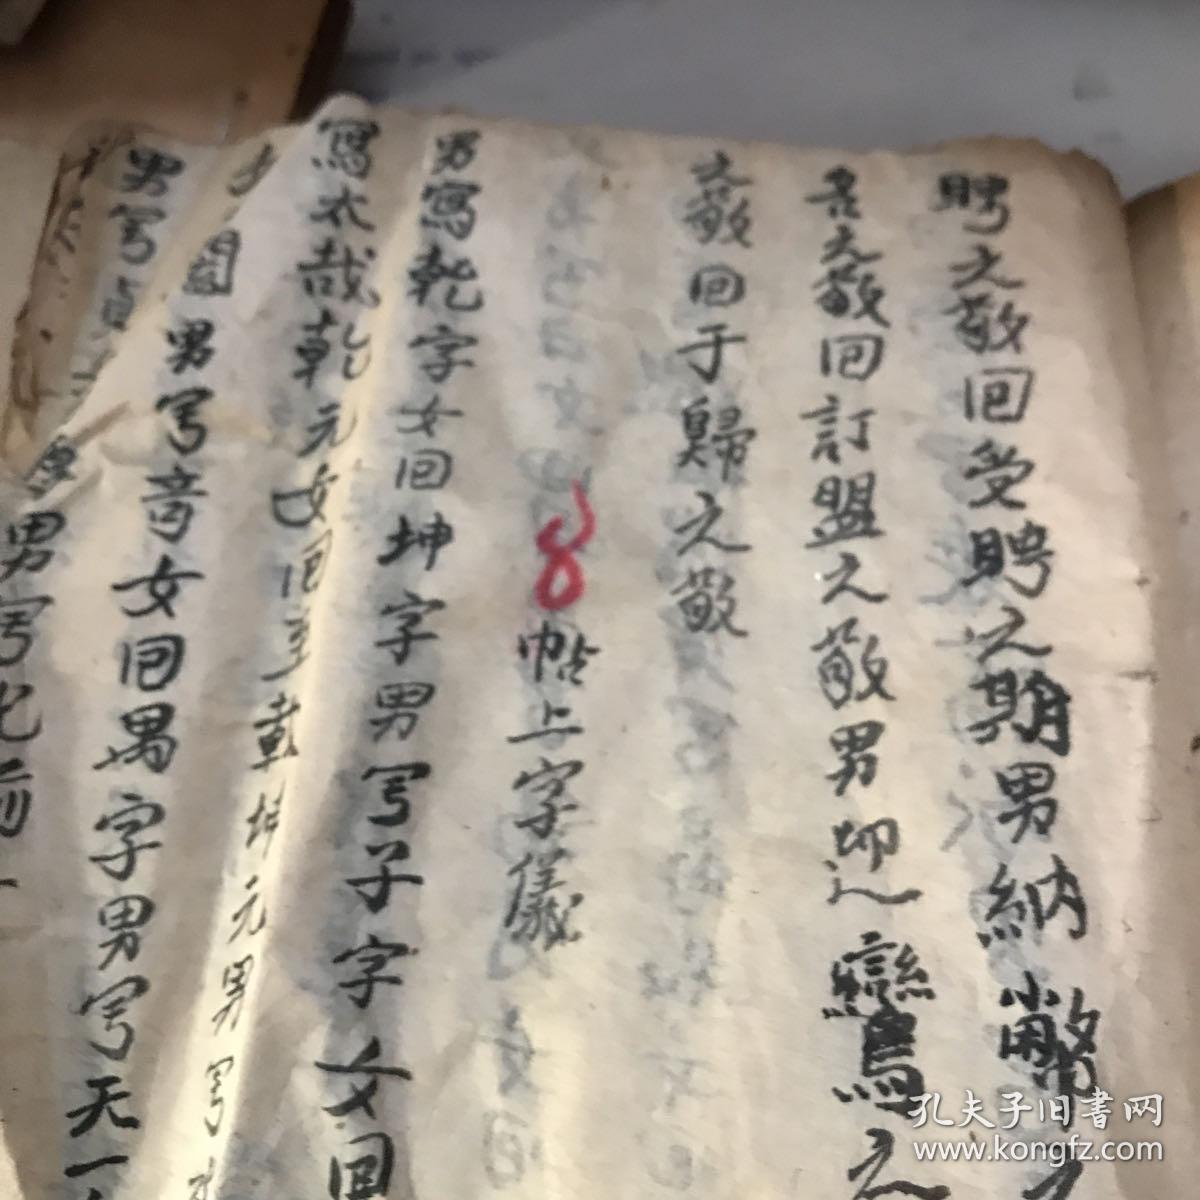 聘之敬回受聘之期男納幣之
言之敬回訂盟之敬男迎鸞之
之敬回于歸之敬
8
帖上字儀
男寫乾字女回坤字男写子字女回
寫太哉乾元女回至載坤元男写
閨男写音女回昌字男写无一
男写
男写
孔夫子旧書网
www.kongfz.com